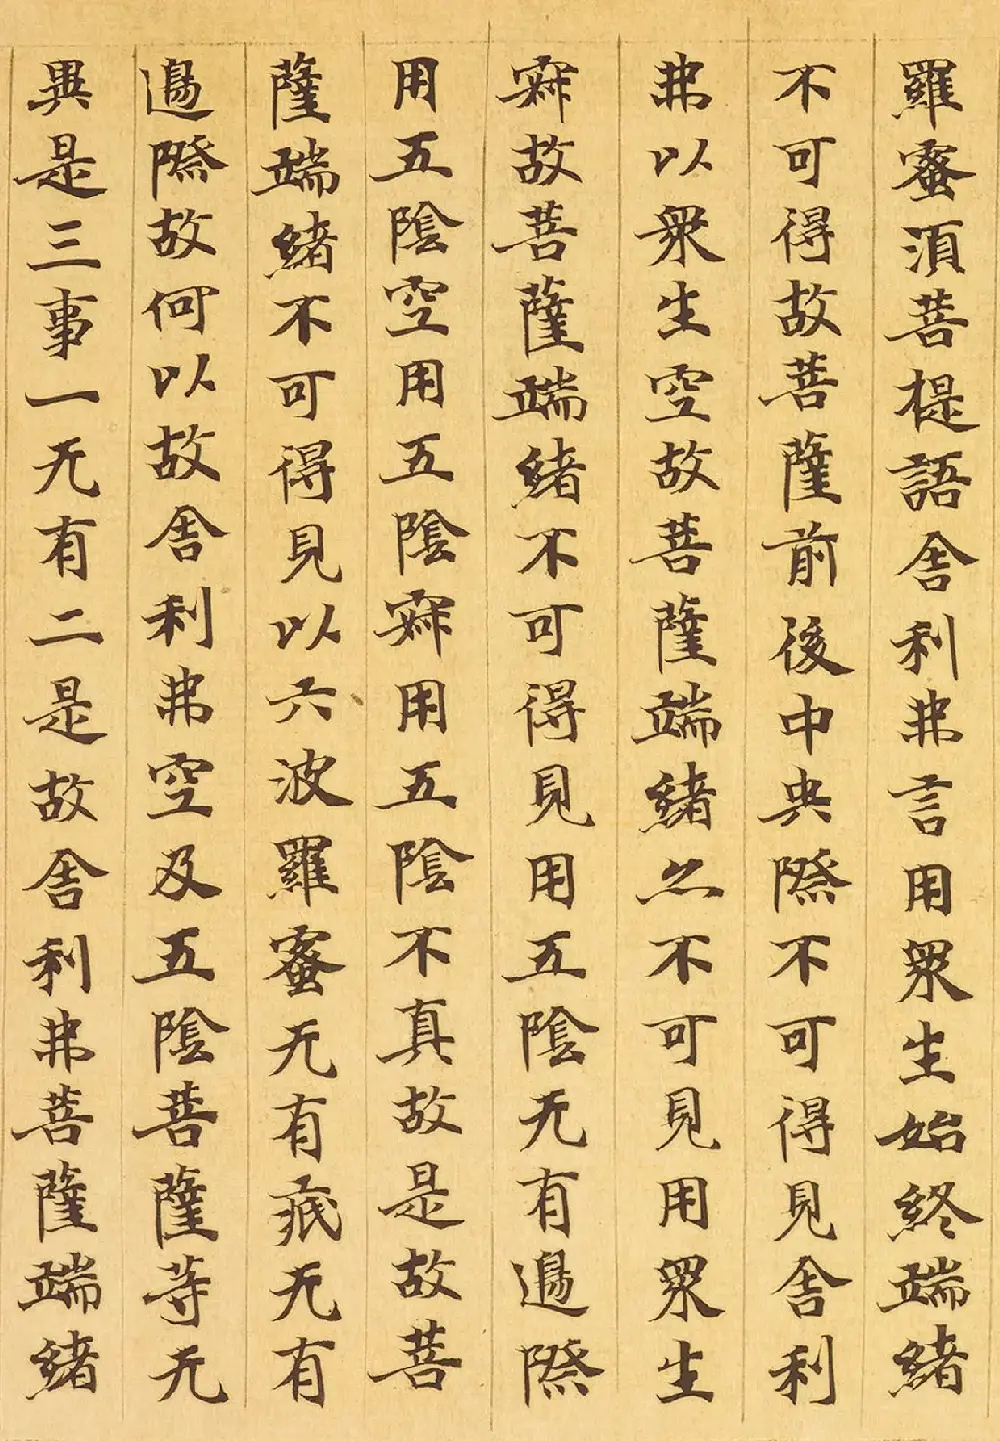 羅蜜須菩提語舍利弗言用眾生始終端緒
不可得故菩薩前後中央際不可得見舍利
弗以眾生空故菩薩端緒亦不可見用眾生
寂故菩薩端緒不可得見用五陰无有邊際
用五陰空用五陰寂用五陰不真故是故菩
薩端緒不可得見以六波羅蜜无有底无有
邊際故何以故舍利弗空及五陰菩薩等无
異是三事一无有二是故舍利弗菩薩端緒